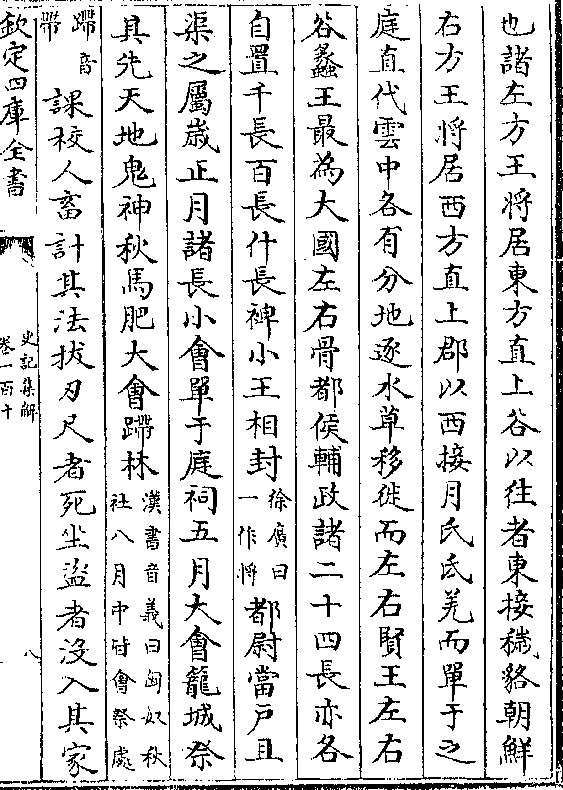 也諸左方王將居東方直上谷以往者東接穢貉朝鮮
右方王將居西方直上郡以西接月氏氐羌而單于之
庭直代雲中各有分地逐水草移徙而左右賢王左右
谷蠡王最為大國左右骨都侯輔政諸二十四長亦各
自置千長百長什長裨小王相封徐廣曰一作將都尉當戶且
渠之屬歲正月諸長小會單于庭祠五月大會籠城祭
其先天地鬼神秋馬肥大會蹛林漢書音義曰匈奴秋社八月中皆會祭處
蹛音帶課校人畜計其法拔刃尺者死坐盜者沒入其家
欽定四庫全書
史記集解
卷一百十
八